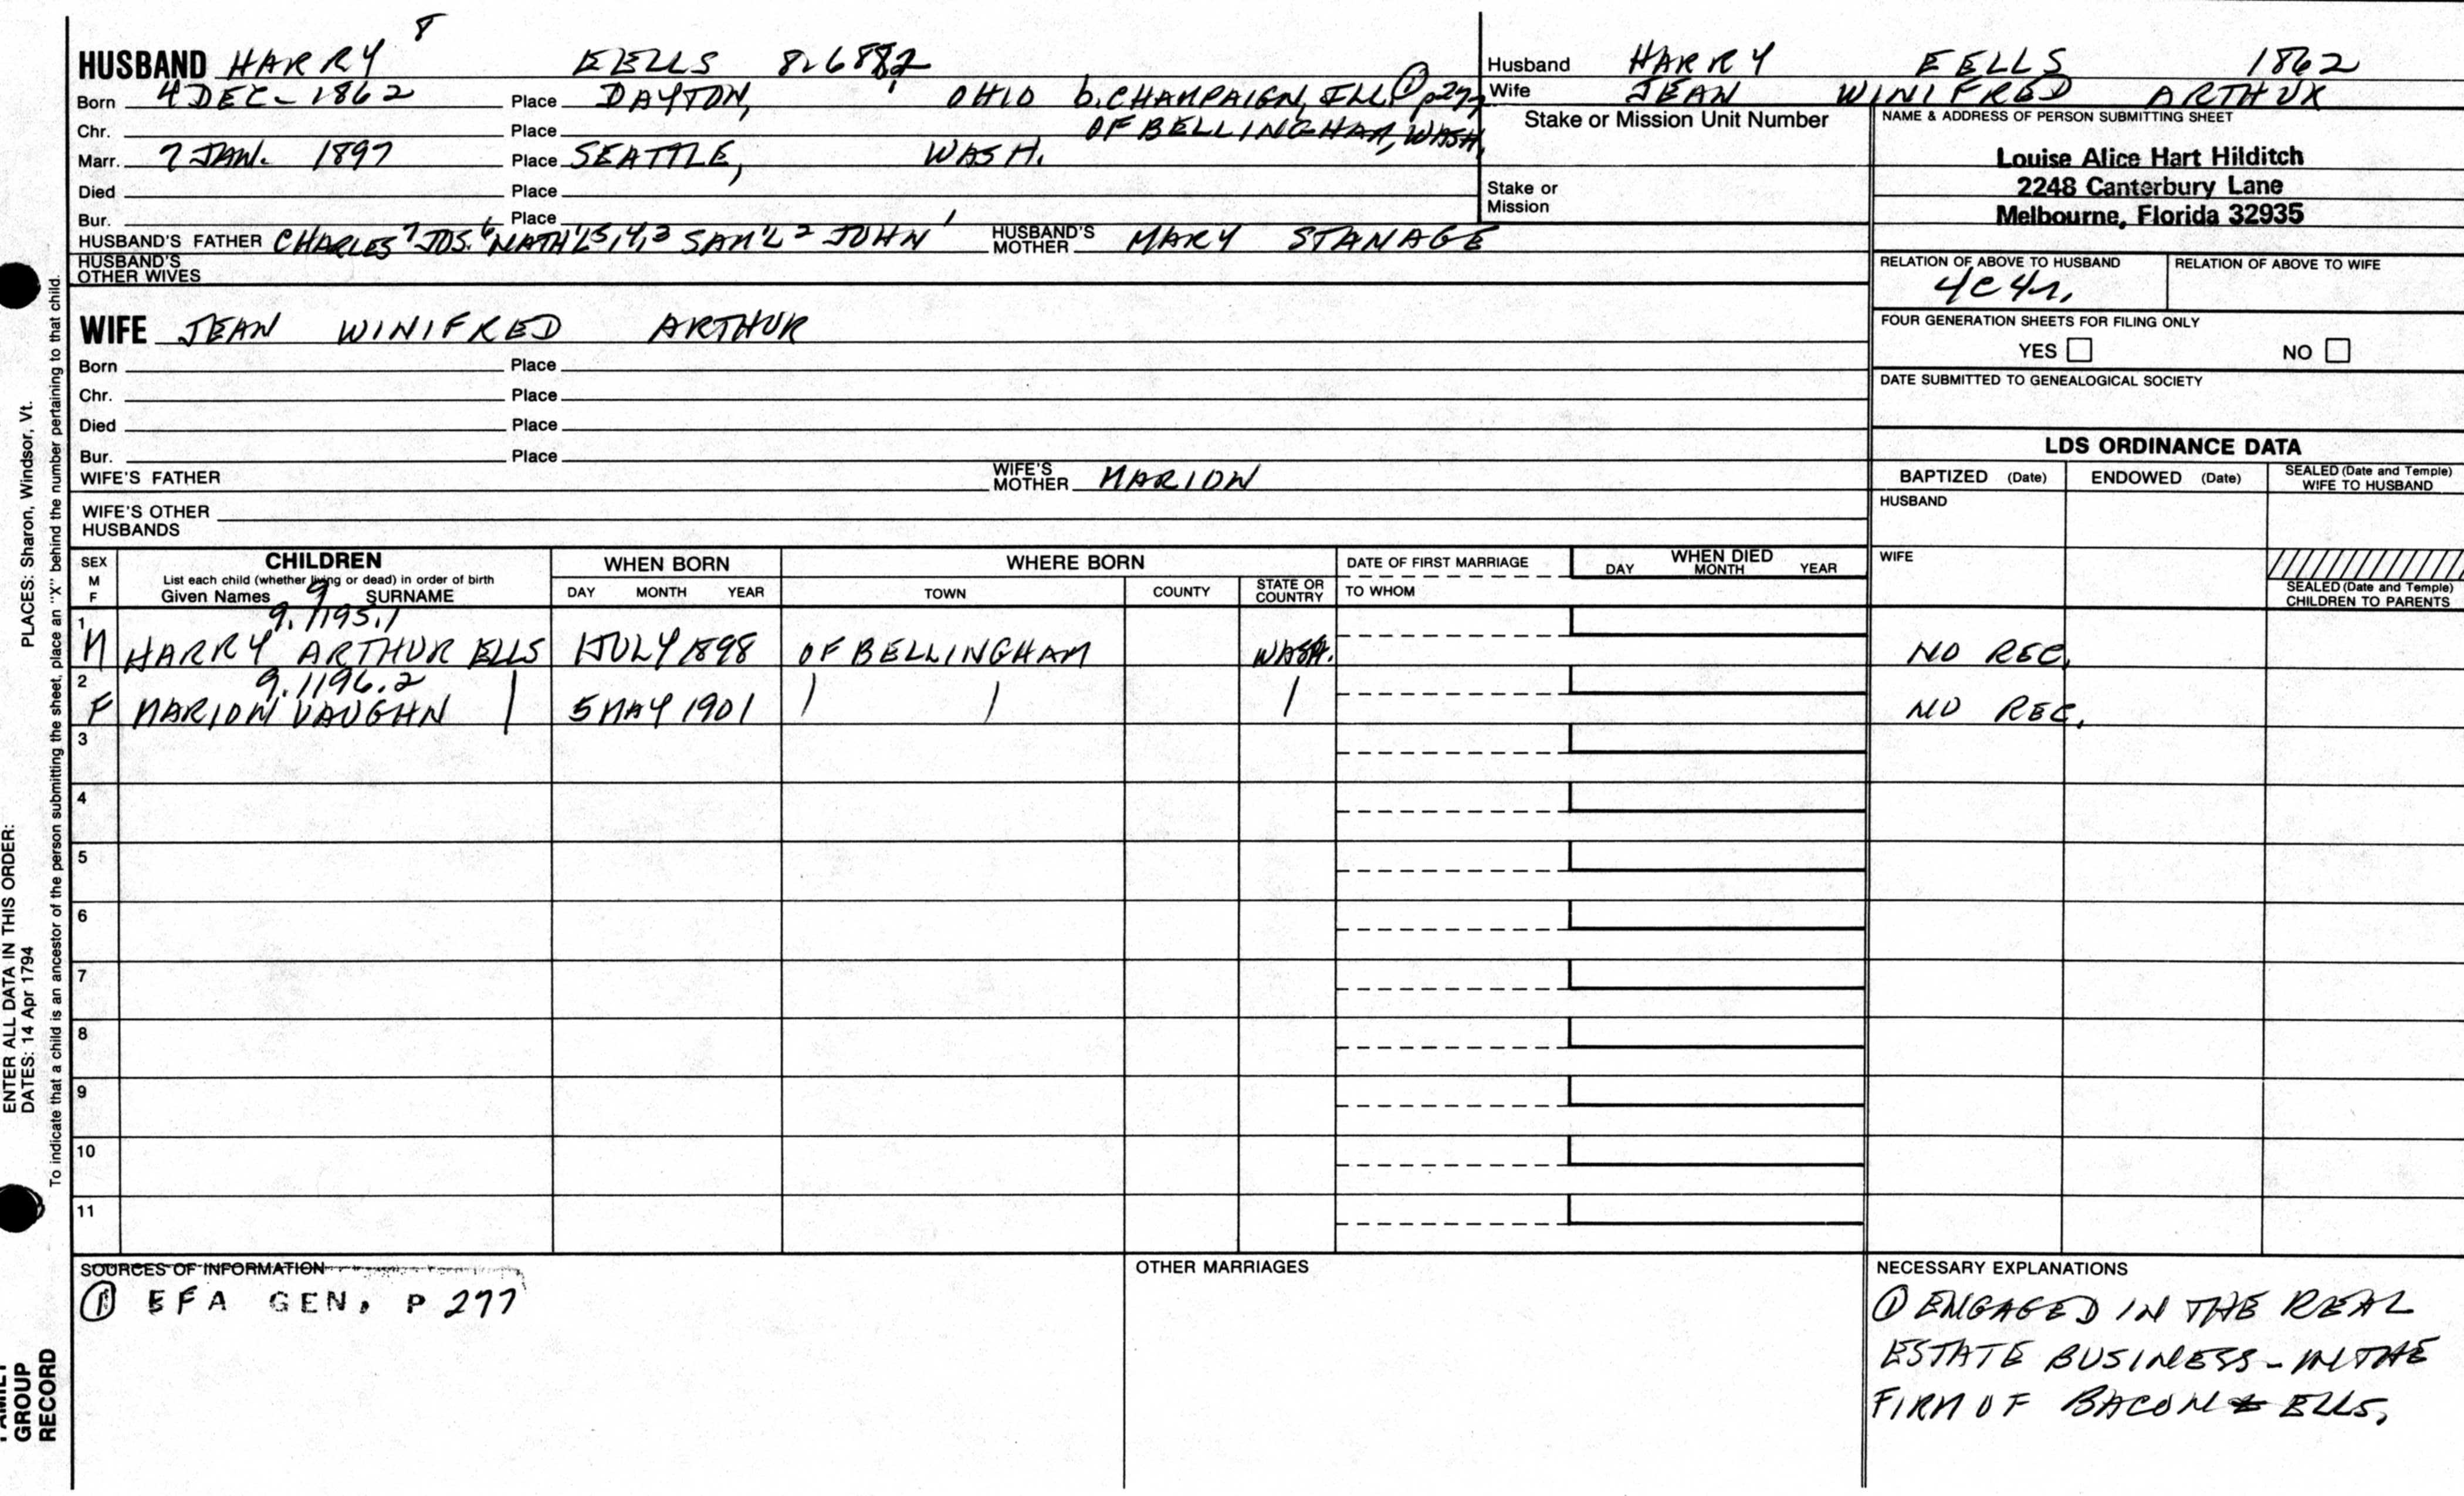 8
HUSBAND HARRY EELLS 8.688.2
Born 4 DEC- 1862 Place DAYTON, OHIO b. CHAMPAIGN, ILL ① p277
Chr. Place OF BELLINGHAM, WASH.
Marr. 7 JAN. 1897 Place SEATTLE, WASH.
Died Place
Bur. Place
HUSBAND'S FATHER CHARLES 7 JOS. 6 NATH'L 5,4,3 SAM'L 2 JOHN 1 HUSBAND'S MOTHER MARY STANAGE
HUSBAND'S OTHER WIVES
WIFE JEAN WINIFRED ARTHUR
Born Place
Chr. Place
Died Place
Bur. Place
WIFE'S FATHER WIFE'S MOTHER MARION
WIFE'S OTHER HUSBANDS
Husband HARRY EELLS 1862
Wife JEAN WINIFRED ARTHUR
Stake or Mission Unit Number
Stake or Mission
NAME & ADDRESS OF PERSON SUBMITTING SHEET
Louise Alice Hart Hilditch
2248 Canterbury Lane
Melbourne, Florida 32935
RELATION OF ABOVE TO HUSBAND RELATION OF ABOVE TO WIFE
4c4r.
FOUR GENERATION SHEETS FOR FILING ONLY
YES NO
DATE SUBMITTED TO GENEALOGICAL SOCIETY
LDS ORDINANCE DATA
BAPTIZED (Date) ENDOWED (Date) SEALED (Date and Temple) WIFE TO HUSBAND
HUSBAND
WIFE
SEALED (Date and Temple) CHILDREN TO PARENTS
SEX M F
CHILDREN
List each child (whether living or dead) in order of birth
Given Names 9 SURNAME
WHEN BORN
DAY MONTH YEAR
WHERE BORN
TOWN COUNTY STATE OR COUNTRY
DATE OF FIRST MARRIAGE
TO WHOM
WHEN DIED
DAY MONTH YEAR
1 9.1195.1
M HARRY ARTHUR ELLS 1 JULY 1898 OF BELLINGHAM WASH. NO REC.
2 9.1196.2
F MARION VAUGHN | 5 MAY 1901 | | | NO REC.
3
4
5
6
7
8
9
10
11
SOURCES OF INFORMATION
① EFA GEN. P 277
OTHER MARRIAGES
NECESSARY EXPLANATIONS
① ENGAGED IN THE REAL
ESTATE BUSINESS - IN THE
FIRM OF BACON & ELLS.
PLACES: Sharon, Windsor, Vt.
ENTER ALL DATA IN THIS ORDER:
DATES: 14 Apr 1794
To indicate that a child is an ancestor of the person submitting the sheet, place an "X" behind the number pertaining to that child.
FAMILY
GROUP
RECORD